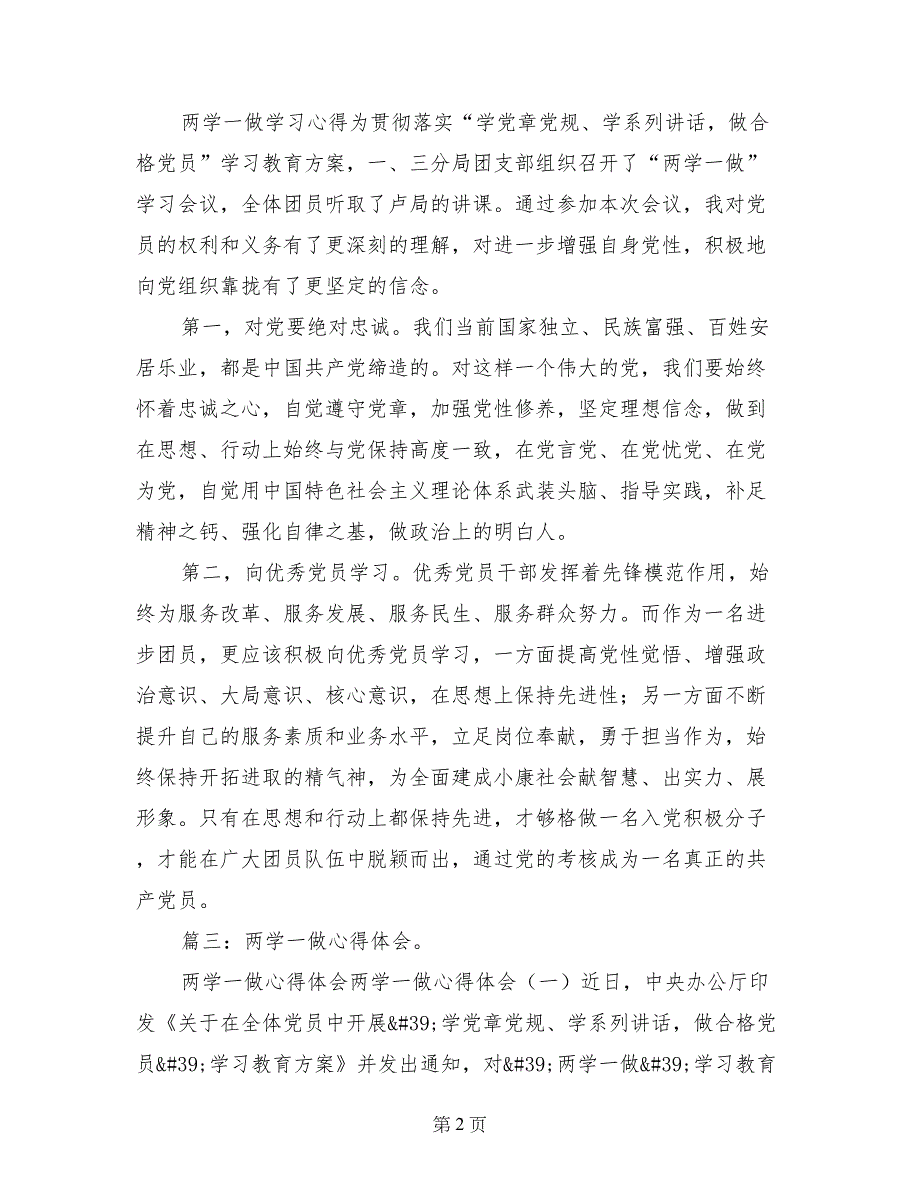 两学一做学习心得为贯彻落实“学党章党规、学系列讲话，做合
格党员”学习教育方案，一、三分局团支部组织召开了“两学一做”
学习会议，全体团员听取了卢局的讲课。通过参加本次会议，我对党
员的权利和义务有了更深刻的理解，对进一步增强自身党性，积极地
向党组织靠拢有了更坚定的信念。
第一，对党要绝对忠诚。我们当前国家独立、民族富强、百姓安
居乐业，都是中国共产党缔造的。对这样一个伟大的党，我们要始终
怀着忠诚之心，自觉遵守党章，加强党性修养，坚定理想信念，做到
在思想、行动上始终与党保持高度一致，在党言党、在党忧党、在党
为党，自觉用中国特色社会主义理论体系武装头脑、指导实践，补足
精神之钙、强化自律之基，做政治上的明白人。
第二，向优秀党员学习。优秀党员干部发挥着先锋模范作用，始
终为服务改革、服务发展、服务民生、服务群众努力。而作为一名进
步团员，更应该积极向优秀党员学习，一方面提高党性觉悟、增强政
治意识、大局意识、核心意识，在思想上保持先进性；另一方面不断
提升自己的服务素质和业务水平，立足岗位奉献，勇于担当作为，始
终保持开拓进取的精气神，为全面建成小康社会献智慧、出实力、展
形象。只有在思想和行动上都保持先进，才够格做一名入党积极分子
，才能在广大团员队伍中脱颖而出，通过党的考核成为一名真正的共
产党员。
篇三：两学一做心得体会。
两学一做心得体会两学一做心得体会（一）近日，中央办公厅印
发《关于在全体党员中开展&#39;学党章党规、学系列讲话，做合格党
员&#39;学习教育方案》并发出通知，对&#39;两学一做&#39;学习教育
第 2 页